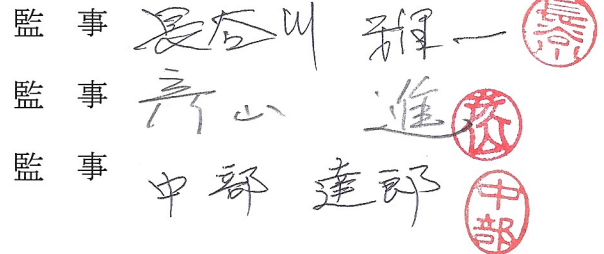 監事 長谷川 一 長谷川
監事 山 進
監事 中部 達郎 中部